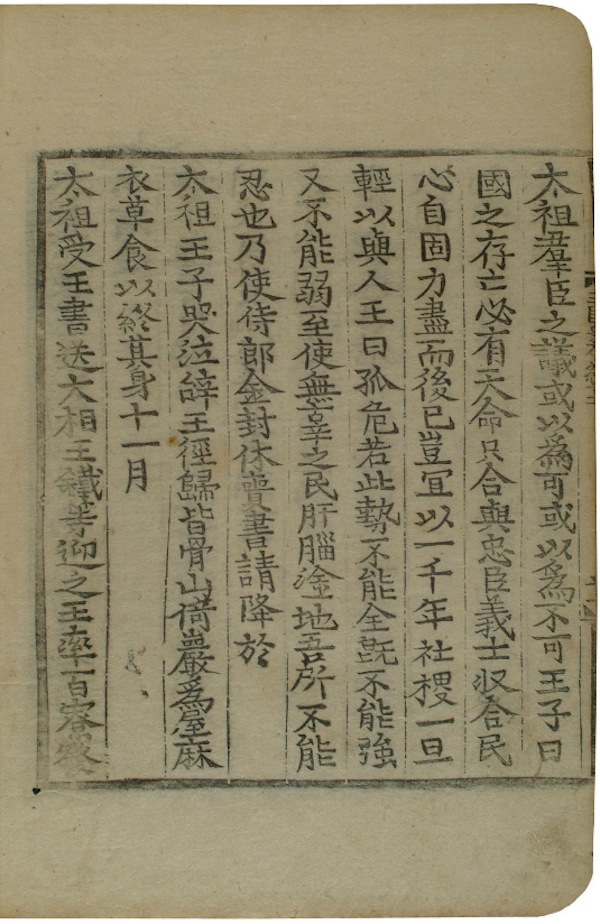 太祖羣臣之議或以爲可或以爲不可王子曰
國之存亡必有天命只合與忠臣義士収合民
心自固力盡而後已豈冝以一千年社稷一旦
輕以與人王曰孤危若此勢不能全旣不能強
又不能弱至使無辜之民肝腦塗地吾所不能
忍也乃使侍郎金封休賷書請降於
太祖王子哭泣辭王徑歸皆骨山倚巖爲屋麻
衣草食以終其身十一月
太祖受王書送大相王鐵等迎之王率百寮